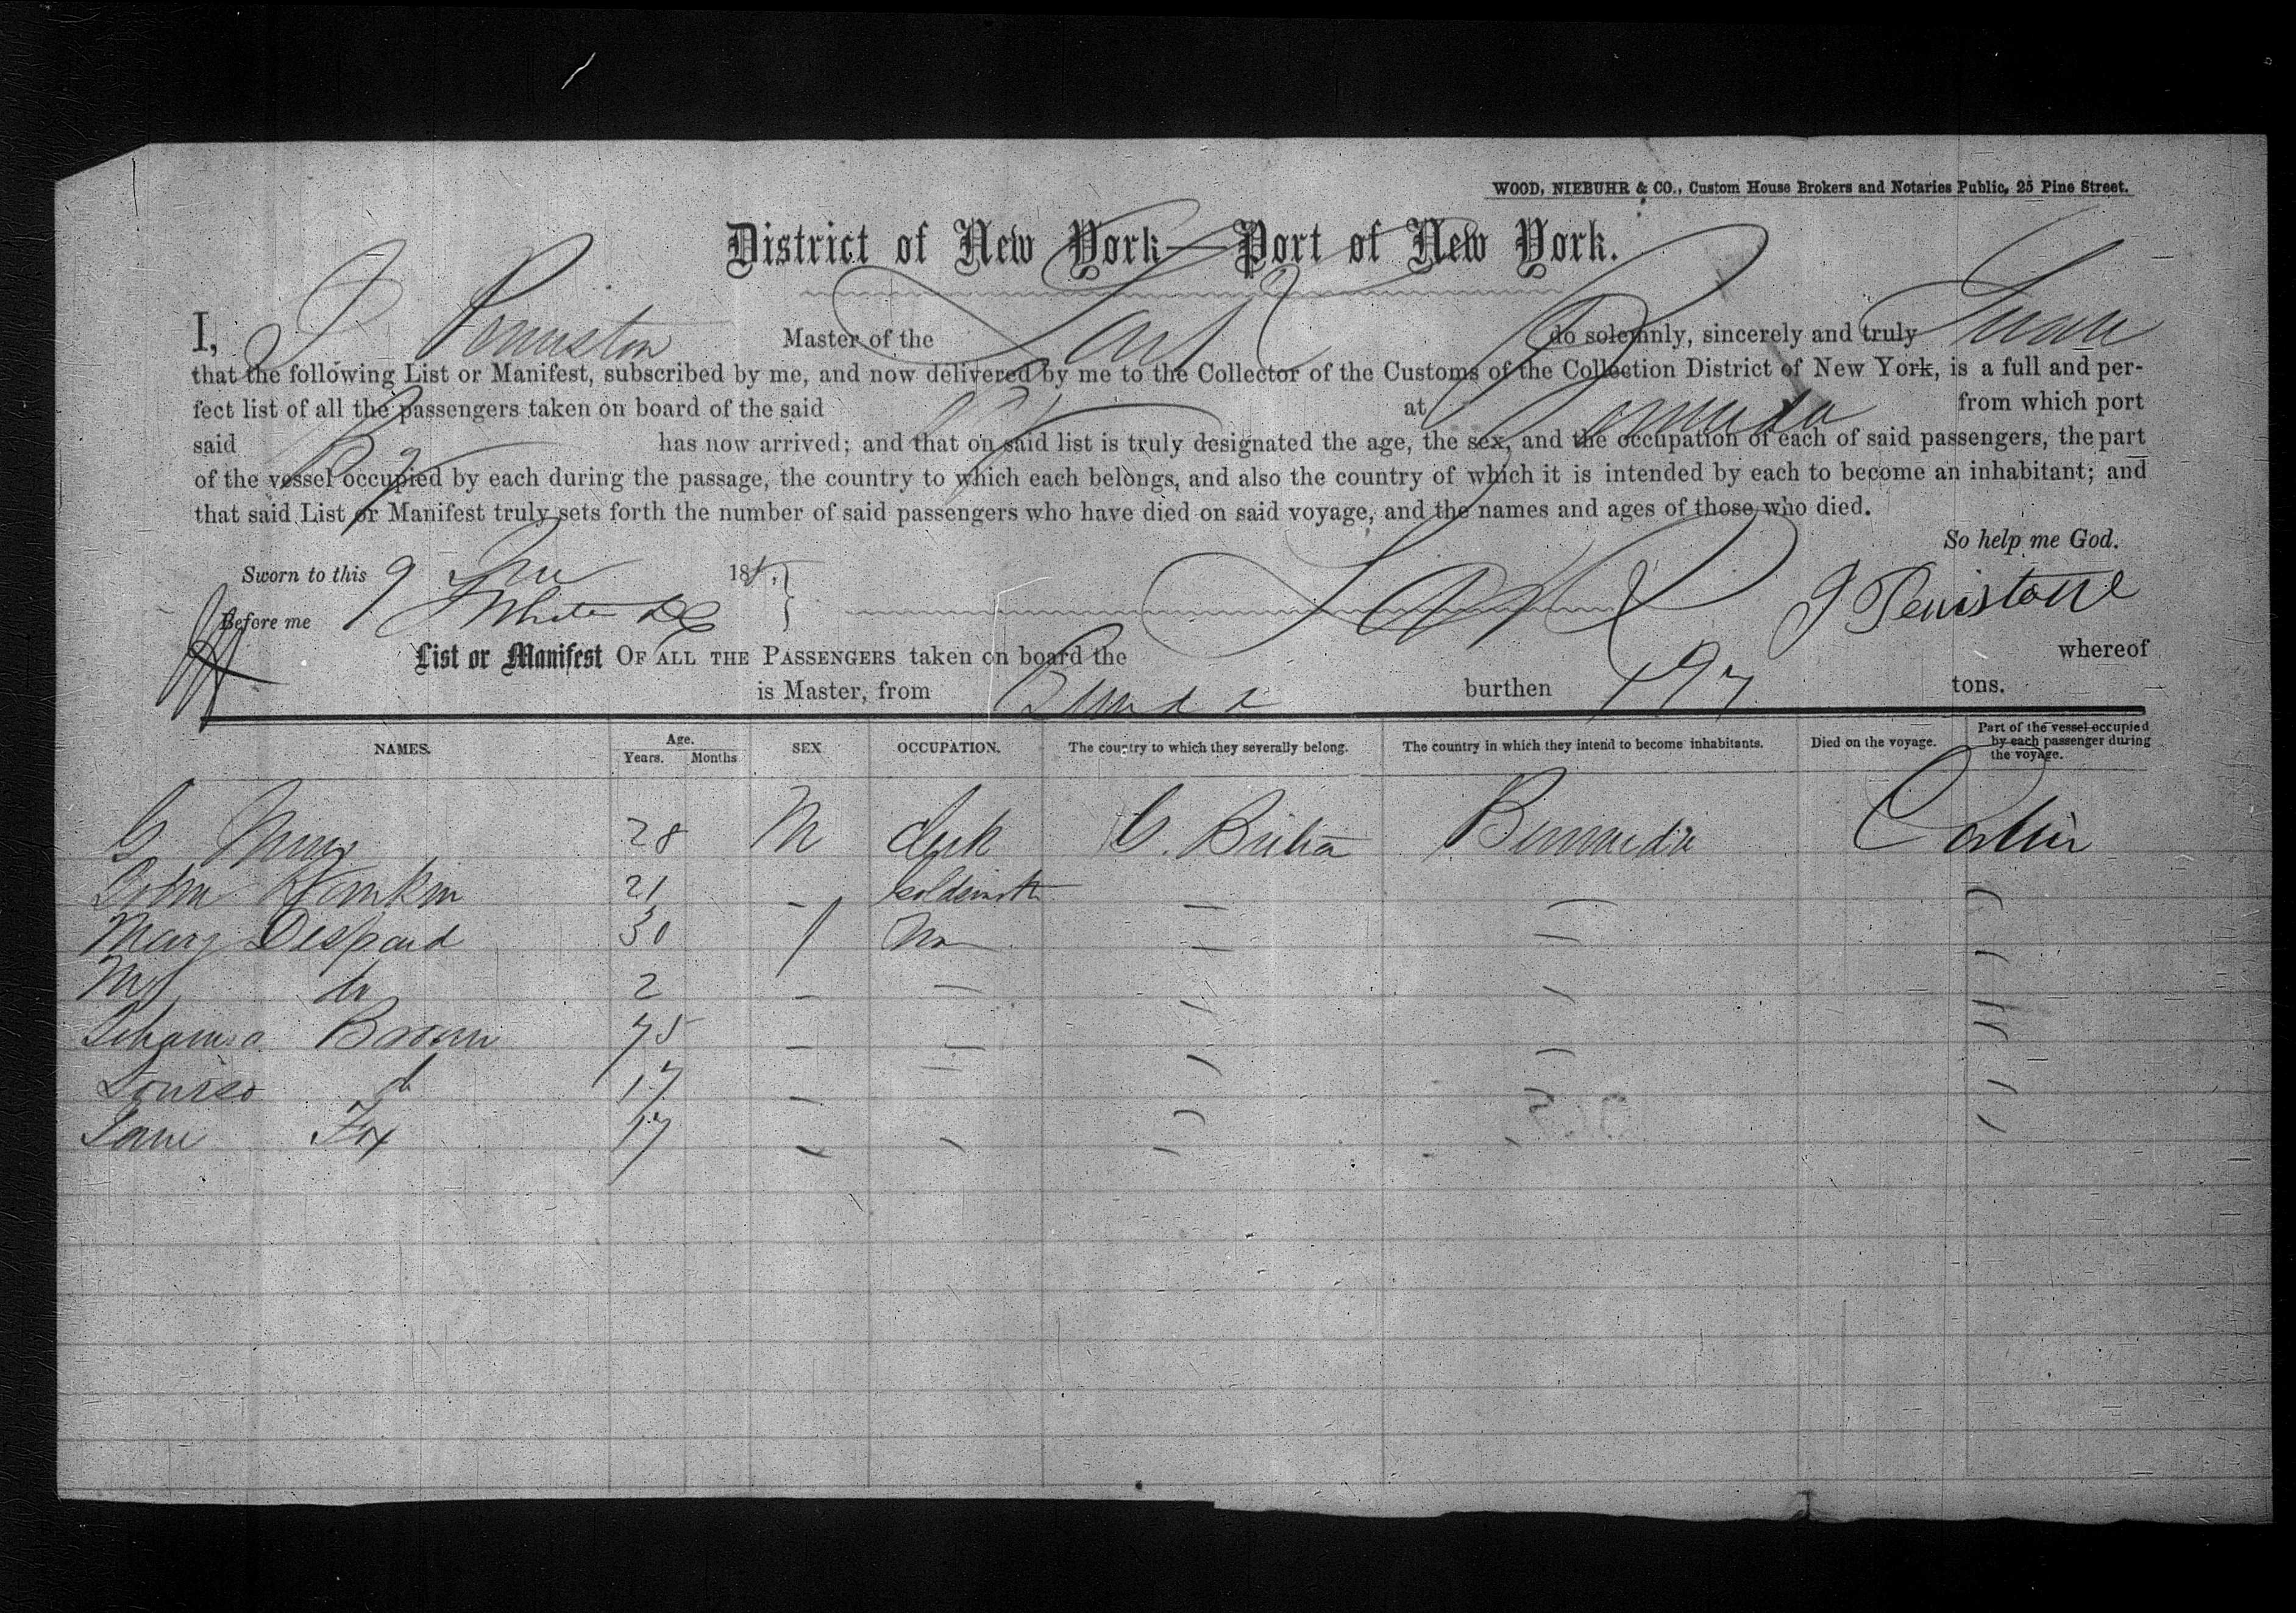 WOOD, NIEBUHR & CO., Custom House Brokers and Notaries Public, 25 Pine Street.
District of New York—Port of New York.
I, J Peniston Master of the Lark do solemnly, sincerely and truly Swear
that the following List or Manifest, subscribed by me, and now delivered by me to the Collector of the Customs of the Collection District of New York, is a full and per-
fect list of all the passengers taken on board of the said Bg at Bermuda from which port
said Bg has now arrived; and that on said list is truly designated the age, the sex, and the occupation of each of said passengers, the part
of the vessel occupied by each during the passage, the country to which each belongs, and also the country of which it is intended by each to become an inhabitant; and
that said List or Manifest truly sets forth the number of said passengers who have died on said voyage, and the names and ages of those who died.
So help me God.
Sworn to this 9 18
Before me White DC J Penistone
List or Manifest OF ALL THE PASSENGERS taken on board the Lark whereof
is Master, from Bermuda burthen 197 tons.
NAMES. Age. Years. Months SEX OCCUPATION. The country to which they severally belong. The country in which they intend to become inhabitants. Died on the voyage. Part of the vessel occupied by each passenger during the voyage.
G 28 M Clerk G. Britain Bermuda Cabin
John 21 - Goldsmith — —
Mary Despard 30 f — —
M do 2 - — — —
Brown 75 - — — —
Louisa do 17 - — — —
Jane Fox 17 - — — —